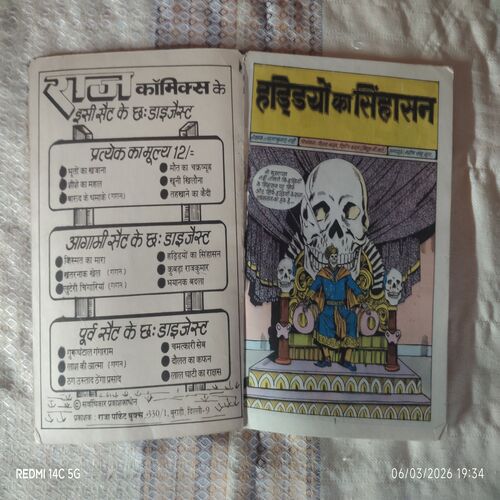 राज कॉमिक्स के
इसी सैट के छः डाइजैस्ट
प्रत्येक का मूल्य 12/=
भूतों का खजाना
शीशे का महल
बारूद के धमाके (गगन)
मौत का चक्रव्यूह
खूनी खिलौना
तहखाने का कैदी
आगामी सैट के छः डाइजैस्ट
किस्मत का मारा
खतरनाक खेल (गगन)
लुटेरी चिंगारियां (गगन)
हड्डियों का सिंहासन
कुबड़ा राजकुमार
भयानक बदला
पूर्व सैट के छः डाइजेस्ट
गुरूघंटाल गंगाराम
लाश की आत्मा (गगन)
ठग उस्ताद ठेंगा प्रसाद
चमत्कारी सेब
दौलत का कफन
लाल घाटी का राक्षस
© सर्वाधिकार प्रकाशकाधीन
प्रकाशक : राजा पॉकेट बुक्स, 330/1, बुराड़ी, दिल्ली-9
हड्डियों का सिंहासन
1
REDMI 14C 5G
06/03/2026 19:34